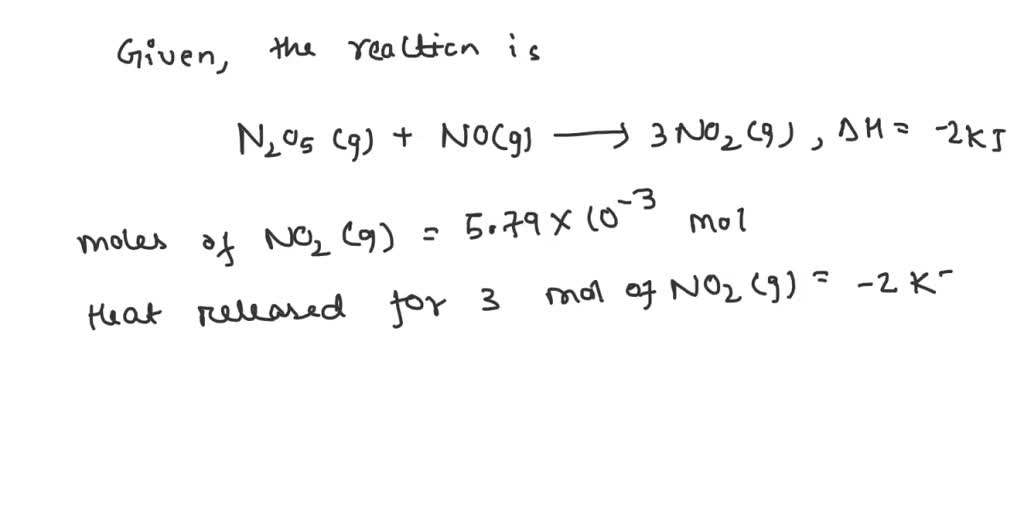 Given, the reaction is
N₂O₅ (g) + NO(g) ⟶ 3 NO₂ (g), ΔH = -2KJ
moles of NO₂ (g) = 5.79 × 10⁻³ mol
Heat released for 3 mol of NO₂ (g) = -2 K